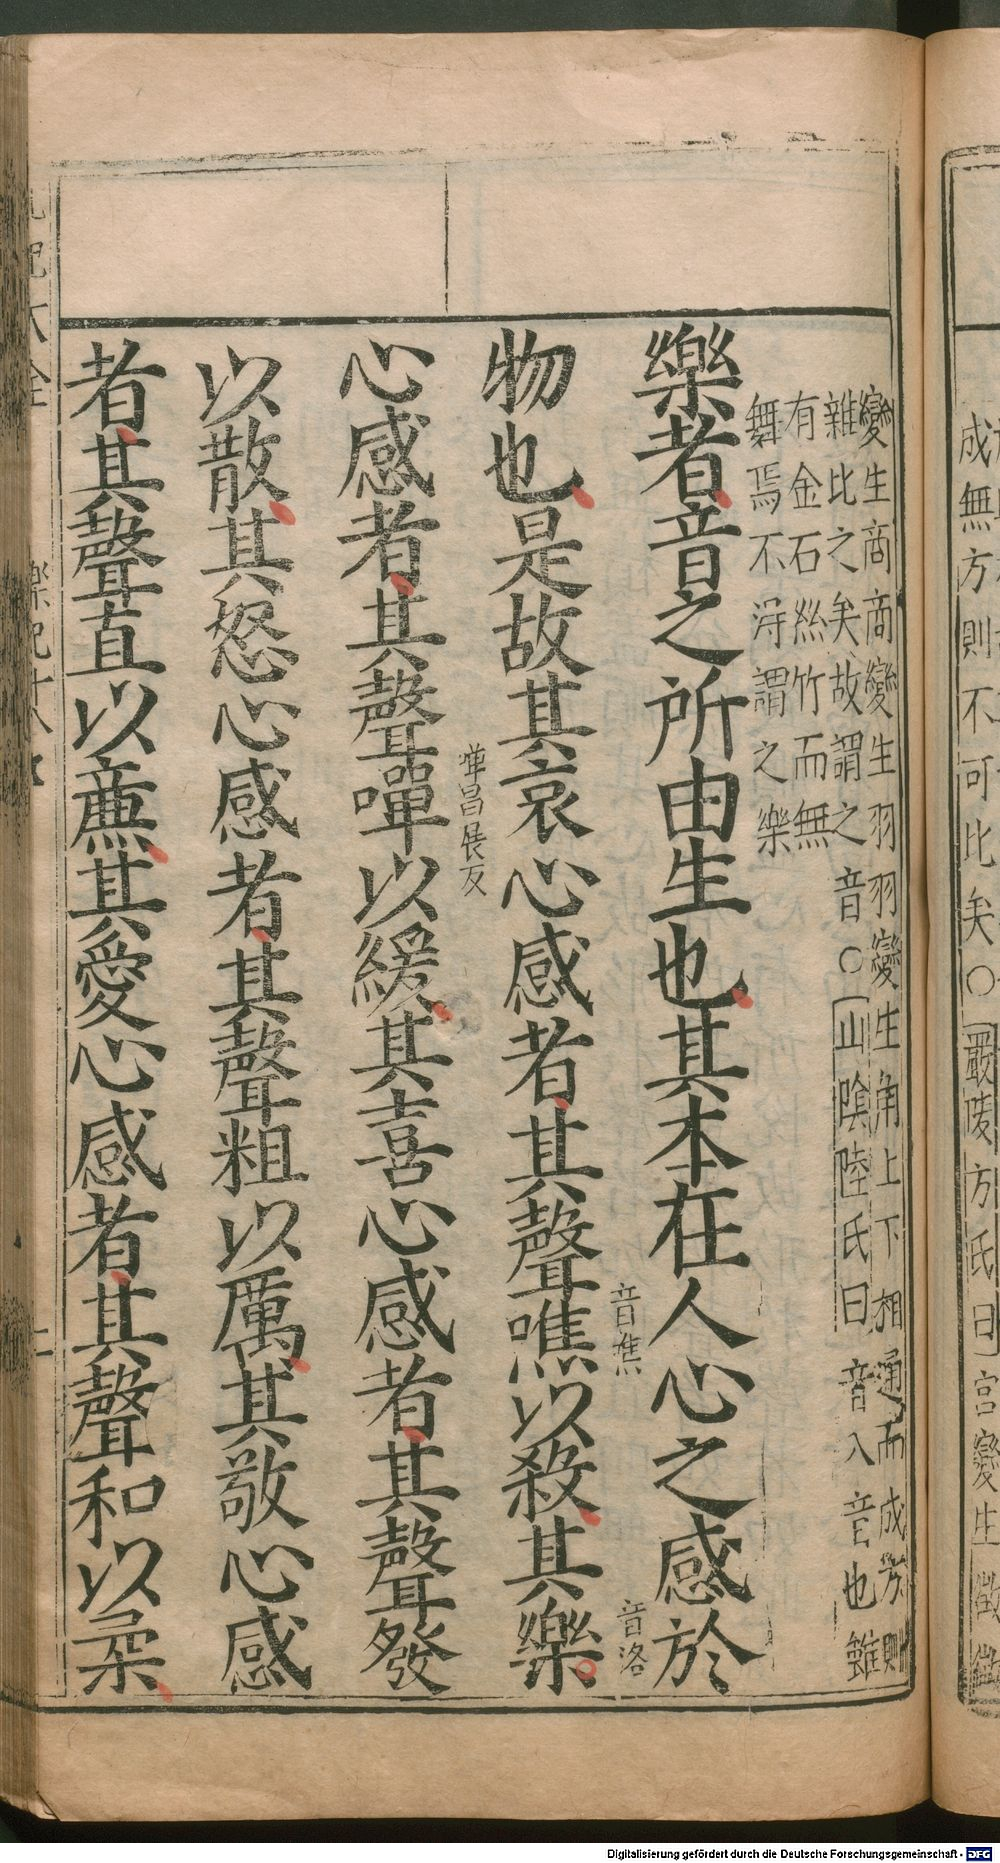 成無方則不可比矣○嚴陵方氏曰宮變生徵徵
變生商商變生羽羽變生角角上下相通而成方則
雜比之矣故謂之音○山陰陸氏曰音入音也雖
有金石絲竹而無
舞焉不淂謂之樂
樂者音之所由生也其本在人心之感於
物也是故其哀心感者其聲噍以殺其樂
音焦
音洛
心感者其聲嘽以緩其喜心感者其聲發
嘽昌展反
以散其怒心感者其聲粗以厲其敬心感
者其聲直以廉其愛心感者其聲和以柔
禮記大全
樂記十八
Digitalisierung gefördert durch die Deutsche Forschungsgemeinschaft - DFG